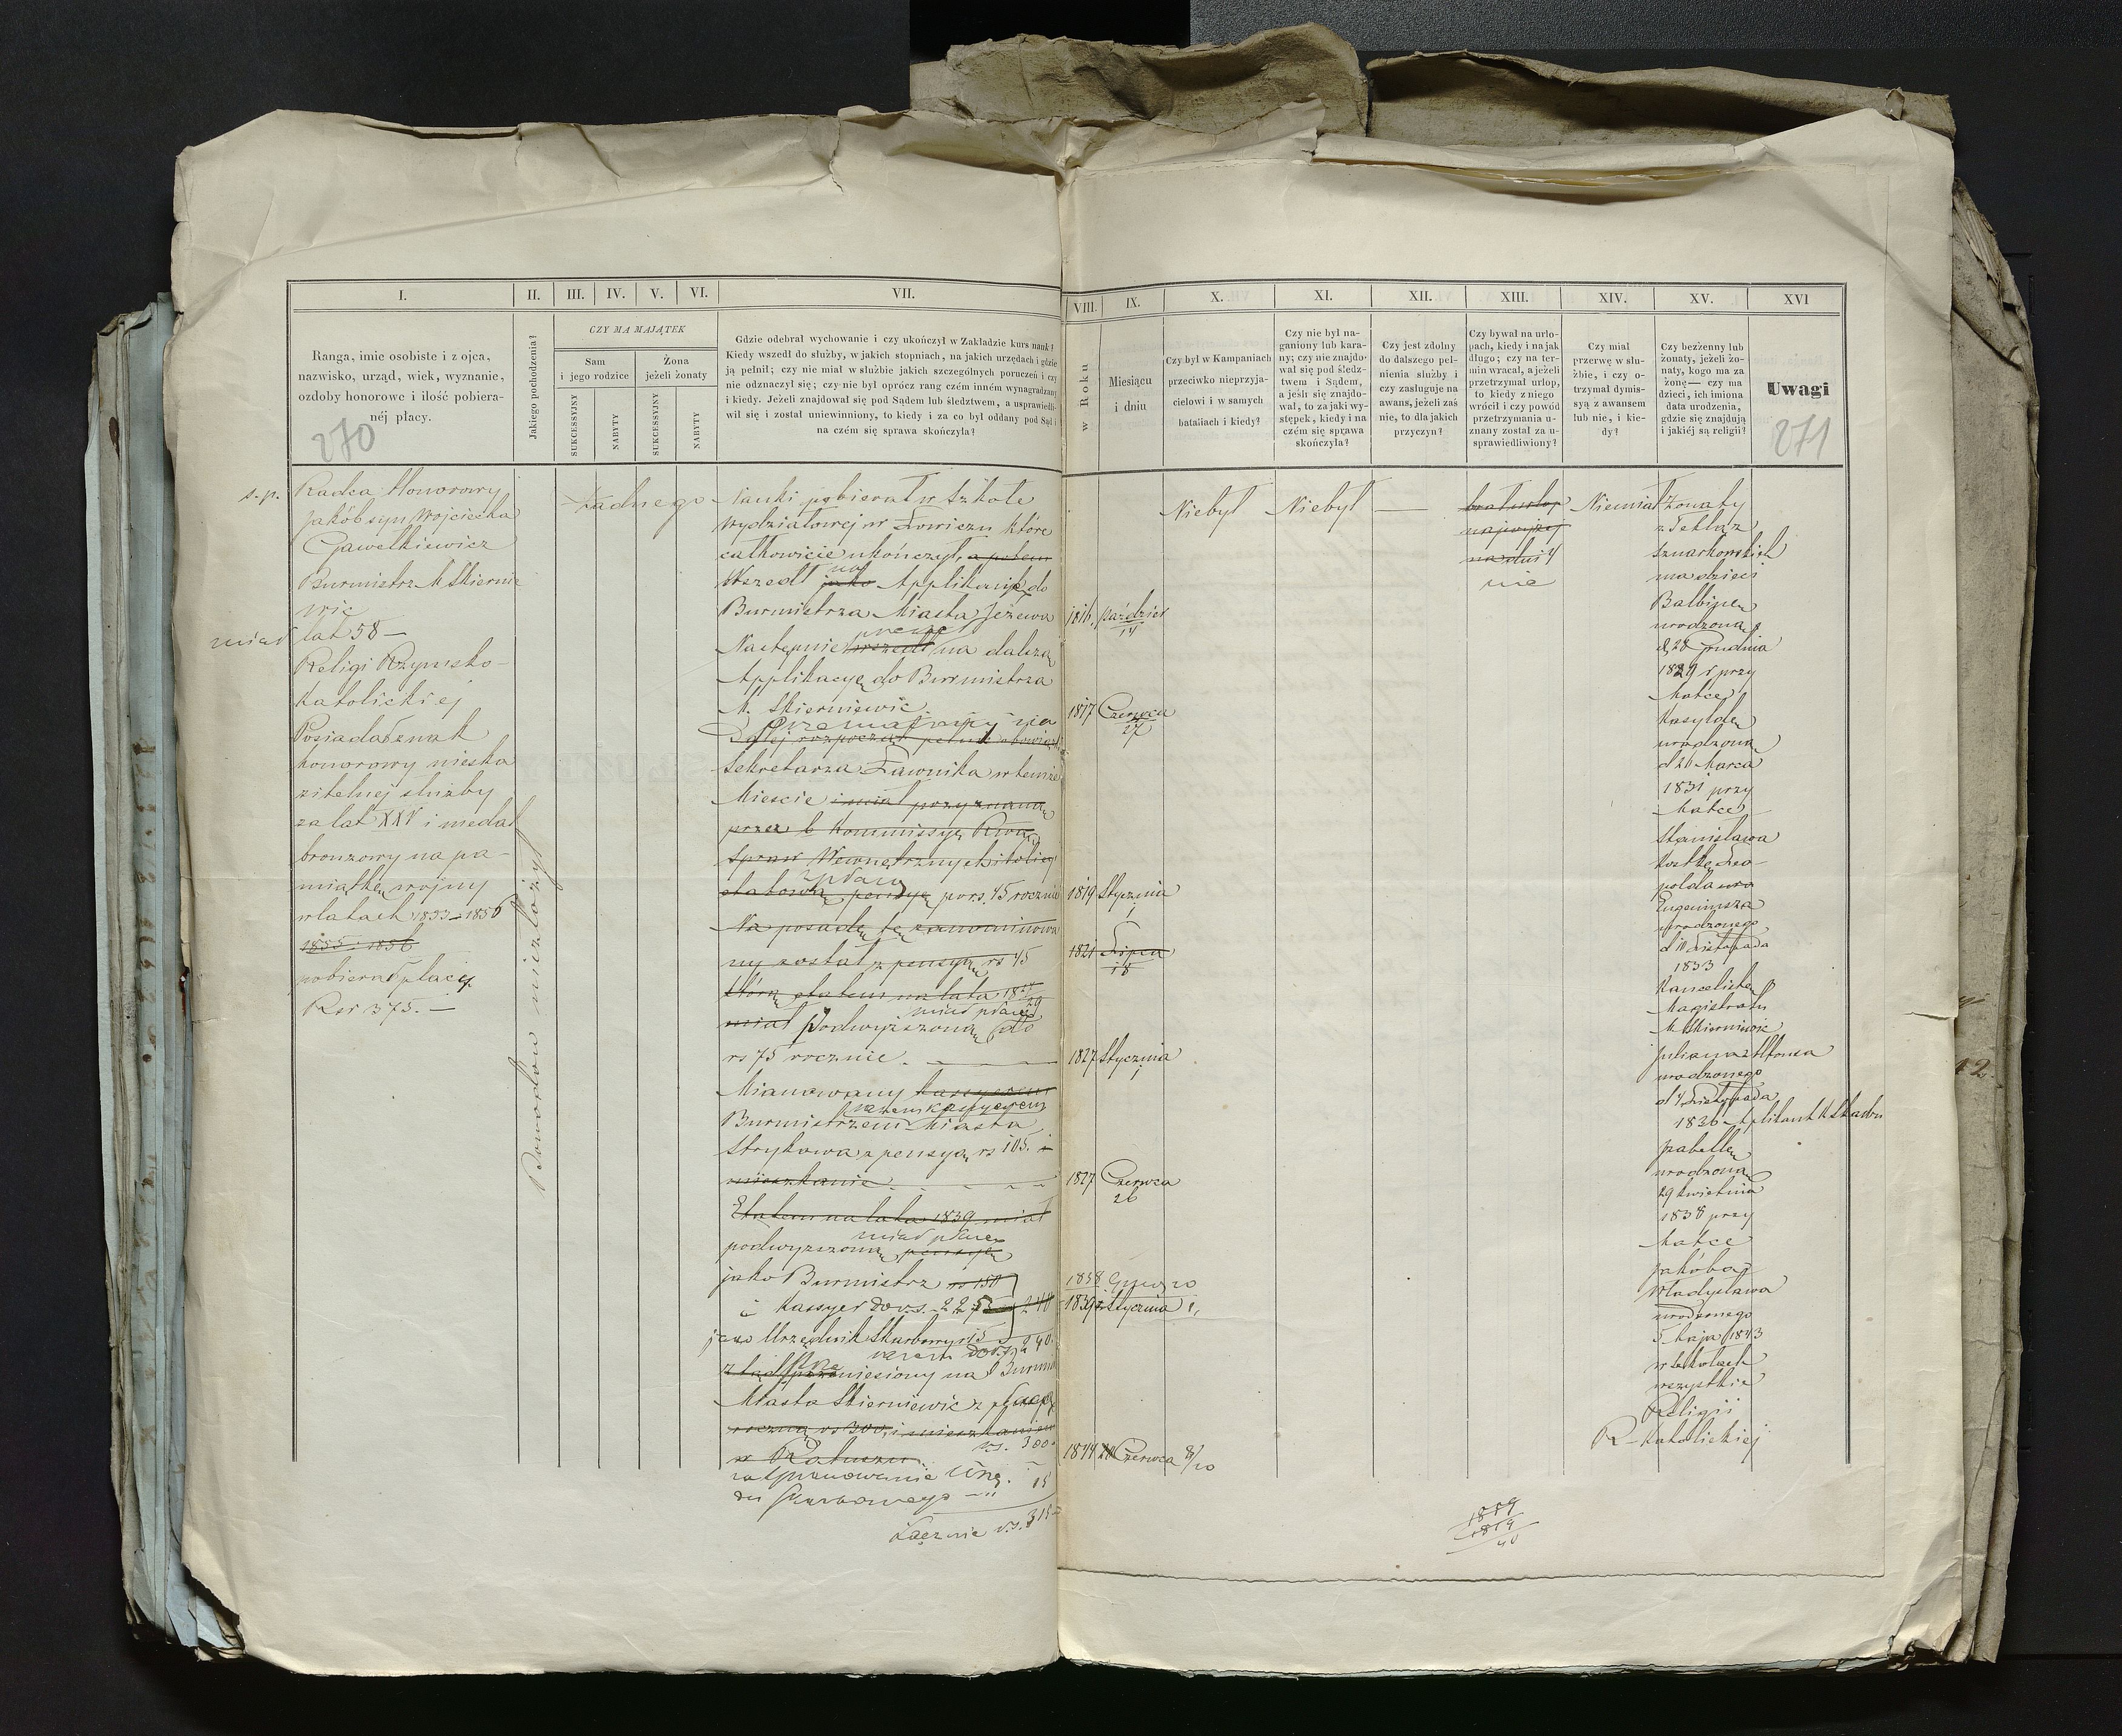 I.
II.
III.
IV.
V.
VI.
VII.
VIII.
IX.
X.
XI.
XII.
XIII.
XIV.
XV.
XVI
Ranga, imie osobiste i z ojca,
nazwisko, urząd, wiek, wyznanie,
ozdoby honorowe i ilość pobiera-
néj płacy.
270
Jakiego pochodzenia?
CZY MA MAJĄTEK
Sam
i jego rodzice
Żona
jeżeli żonaty
SUKCESSYJNY
NABYTY
SUKCESSYJNY
NABYTY
Gdzie odebrał wychowanie i czy ukończył w Zakładzie kurs nauk?
Kiedy wszedł do służby, w jakich stopniach, na jakich urzędach i gdzie
ją pełnił; czy nie miał w służbie jakich szczególnych poruczeń i czy
nie odznaczył się; czy nie był oprócz rang czém inném wynagradzany
i kiedy. Jeżeli znajdował się pod Sądem lub śledztwem, a usprawiedli-
wił się i został uniewinniony, to kiedy i za co był oddany pod Sąd i
na czém się sprawa skończyła?
w Roku
Miesiącu
i dniu
Czy był w Kampaniach
przeciwko nieprzyja-
cielowi i w samych
bataliach i kiedy?
Czy nie był na-
ganiony lub kara-
ny; czy nie znajdo-
wał się pod śledz-
twem i Sądem,
a jeśli się znajdo-
wał, to za jaki wy-
stępek, kiedy i na
czém się sprawa
skończyła?
Czy jest zdolny
do dalszego peł-
nienia służby i
czy zasługuje na
awans, jeżeli zaś
nie, to dla jakich
przyczyn?
Czy bywał na urlo-
pach, kiedy i na jak
długo; czy na ter-
min wracał, a jeżeli
przetrzymał urlop,
to kiedy z niego
wrócił i czy powód
przetrzymania u-
znany został za u-
sprawiedliwiony?
Czy miał
przerwę w słu-
żbie, i czy o-
trzymał dymis-
syą z awansem
lub nie, i kie-
dy?
Czy bezżenny lub
żonaty, jeżeli żo-
naty, kogo ma za
żonę— czy ma
dzieci, ich imiona
data urodzenia,
gdzie się znajdują
i jakiéj są religii?
Uwagi
271
s.p. Radca Honorowy
Jakób syn Wojciecha
Gawełkiewicz
Burmistrz M Skiernie
wic
miał lat 58 —
Religi Rzymsko-
Katolickiej
Posiadał znak
honorowy nieska
zitelnej służby
za lat XXV i medal
bronzowy na pa-
miątkę wojny
w latach 1853–1856
1855 i 1856
pobierał płacy
Rsr 375. —
Dowodów niezłożył
żadnego
Nauki pobierał w Szkole
Wydziałowej w Łowiczu które
całkowicie ukończył, a potem
na
Wszedł jako Applikanta do
Burmistrza Miasta Jeżewa
Następnie wszedł na dalszą
Applikacyę do Burmistrza
M. Skierniewic
Dalej rozpoczął pełnić obowiązki
Sekretarza Ławnika w temże
Mieście i miał przyznaną
przez b Kommissyę Rzą
Spraw Wewnętrznych i Policyi
z płacą
etatową pensyę po rs. 45 rocznie
Na posadę tę zanominowa
ny został z pensyą rs 45
którą etatem na lata
miał płacę
miał podwyższoną do
rs 75 rocznie. —
Mianowany Kassyerem
razem kassyerem
Burmistrzem Miasta
Strykowa z pensyą rs 105. i
mieszkanie
Etatem na lata 1839 miał
miał płacę
podwyższoną pensyę
jako Burmistrz rs 150
i Kassyer do rs. 225
jako Urzędnik Skarbowy rs 15
240
razem do rs.
przeniesiony na Burmi
Miasta Skierniewic z płacą
roczną rs 300, i mieszkaniem
rs. 300
w Ratuszu
za sprawowanie Urzę.
du Skarbowego — " 15
Łącznie rs. 315
1816. Paździer
14
1817 Czerwca
27
1819 Stycznia
1
1821 Lipca
18
1827 Stycznia
1
1827 Czerwca
26
1838
1839 Stycznia 1,
1844 Czerwca 8/20
Niebył
Niebył
—
brał urlop
najwyżej
na dni 4
nie
Niemiał
Żonaty
z Teklą z
Sznarkowskich
ma dzieci
Balbinę
urodzoną
d, 28 Grudnia
1829 r przy
Matce
Kasyldę
urodzoną
d 26 Marca
1831 przy
Matce
Stanisława
Kostkę Leo-
polda
Eugeniusza
urodzonego
d 10 Listopada
1833
Kancelistę
Magistratu
M Skierniewic
Juliana Alfonsa
urodzonego
d 4 Listopada
1836 Aplikant K Skarbu
Izabellę
urodzoną
29 kwietnia
1838 przy
Matce
Jakóba
Władysława
urodzonego
5 Maja 1843
w szkołach
wszystkie
Religii
R–Katolickiej
1859
1819
40